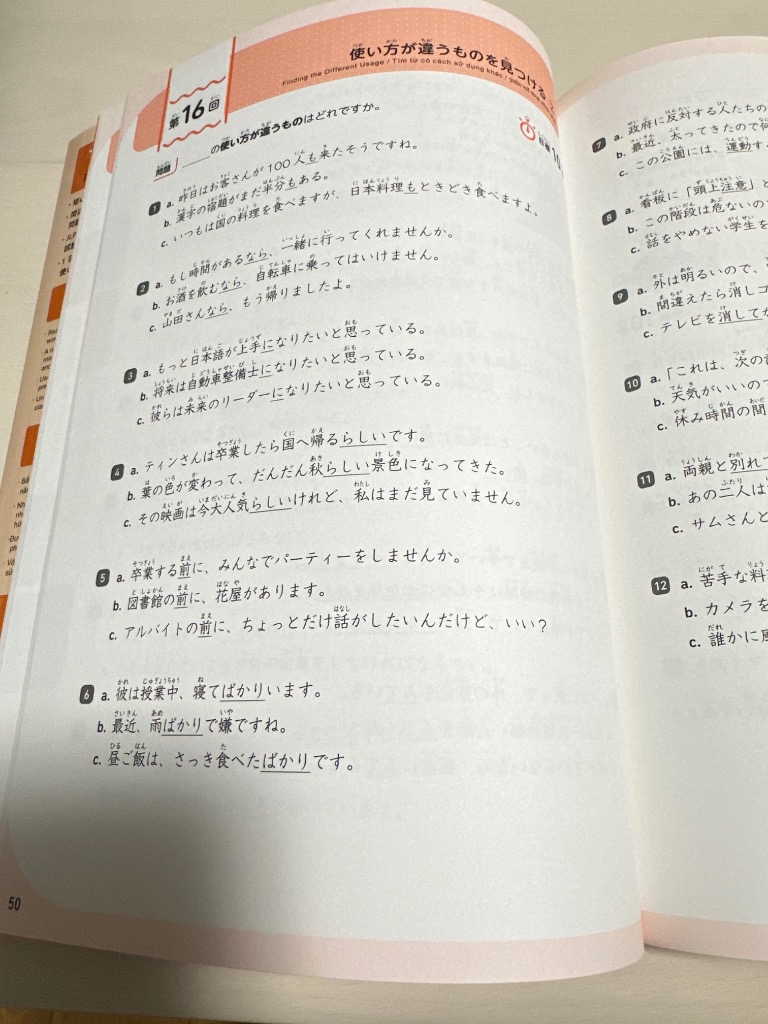 第16回
使い方が違うものを見つける
Finding the Different Usage / Tìm từ có cách sử dụng khác /
問題 ＿＿＿の使い方が違うものはどれですか。
1 a. 昨日はお客さんが100人も来たそうですね。
b. 漢字の宿題がまだ半分もある。
c. いつもは国の料理を食べますが、日本料理もときどき食べますよ。
2 a. もし時間があるなら、一緒に行ってくれませんか。
b. お酒を飲むなら、自転車に乗ってはいけません。
c. 山田さんなら、もう帰りましたよ。
3 a. もっと日本語が上手になりたいと思っている。
b. 将来は自動車整備士になりたいと思っている。
c. 彼らは未来のリーダーになりたいと思っている。
4 a. ティンさんは卒業したら国へ帰るらしいです。
b. 葉の色が変わって、だんだん秋らしい景色になってきた。
c. その映画は今大人気らしいけれど、私はまだ見ていません。
5 a. 卒業する前に、みんなでパーティーをしませんか。
b. 図書館の前に、花屋があります。
c. アルバイトの前に、ちょっとだけ話がしたいんだけど、いい？
6 a. 彼は授業中、寝てばかりいます。
b. 最近、雨ばかりで嫌ですね。
c. 昼ご飯は、さっき食べたばかりです。
50
7 a. 政府に反対する人たちの
b. 最近、太ってきたので
c. この公園には、運動す
8 a. 看板に「頭上注意」と
b. この階段は危ないの
c. 話をやめない学生を
9 a. 外は明るいので、
b. 間違えたら消しゴ
c. テレビを消してか
10 a. 「これは、次の
b. 天気がいいので
c. 休み時間の間
11 a. 両親と別れて
b. あの二人は
c. サムさんと
12 a. 苦手な料
b. カメラを
c. 誰かに